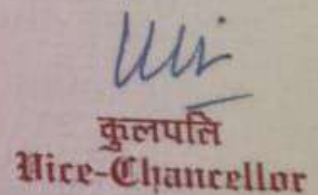 कुलपति
Vice-Chancellor